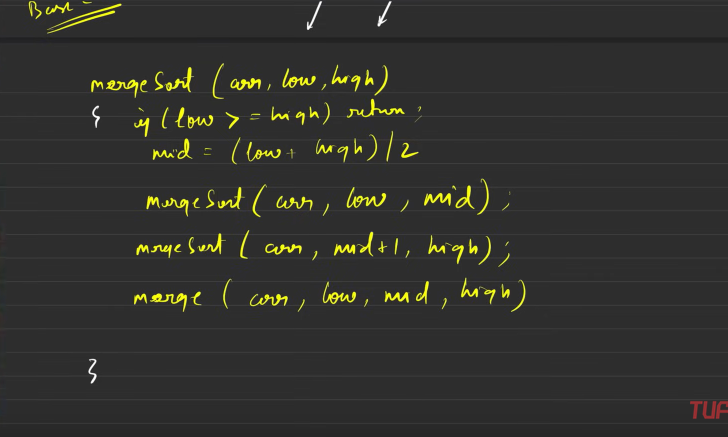 mergeSort (arr, low, high)
{ if (low >= high) return;
mid = (low + high) / 2
mergeSort (arr, low, mid);
mergeSort (arr, mid+1, high);
merge (arr, low, mid, high)
}
TUF